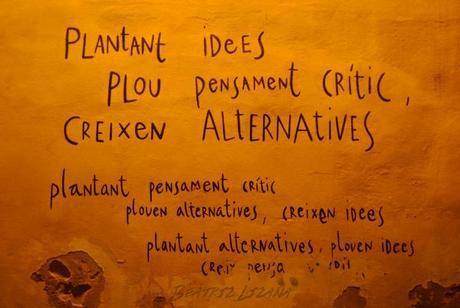 PLANTANT IDEES
PLOU PENSAMENT CRÍTIC,
CREIXEN ALTERNATIVES
plantant pensament crític
plouen alternatives, creixen idees
plantant alternatives, plouen idees
BEATRIZ LIZANA